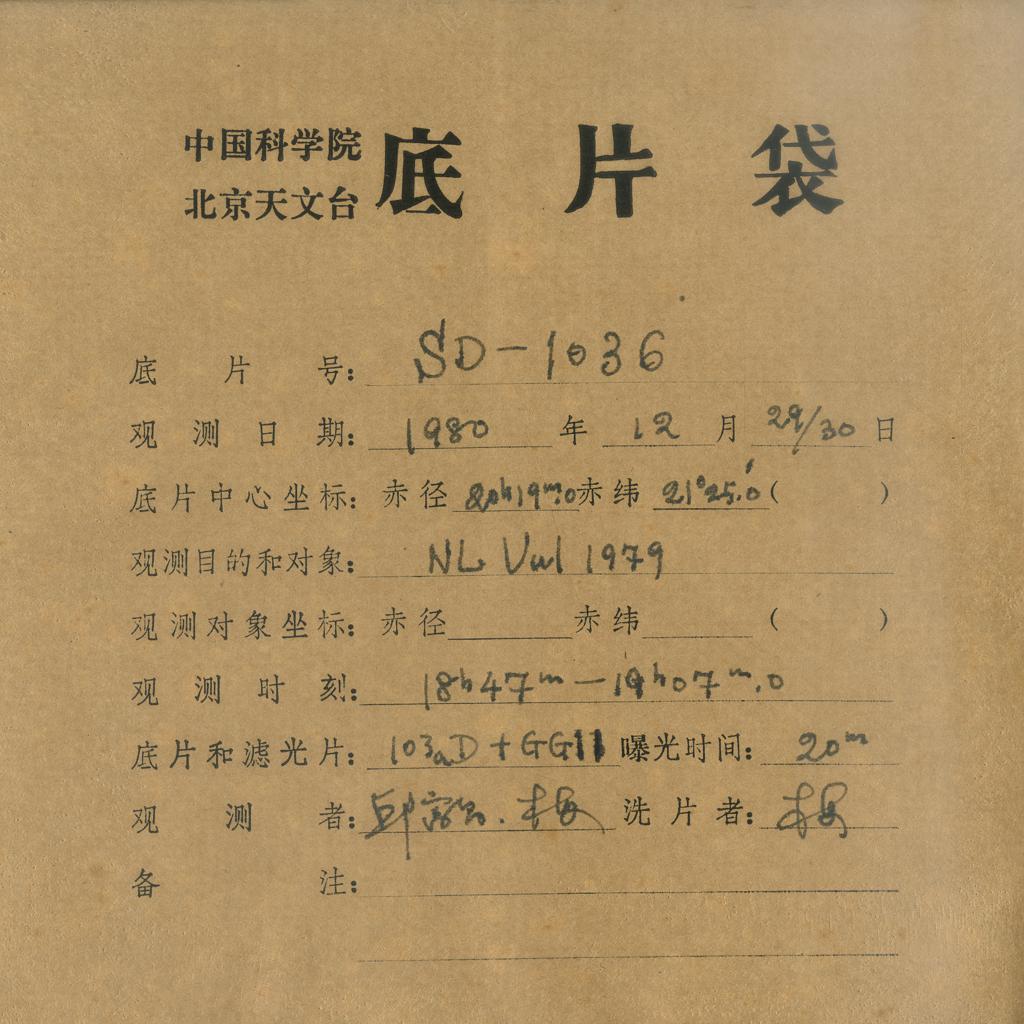 中国科学院
北京天文台
底片袋
底片号: SD-1036
观测日期: 1980 年 12 月 29/30 日
底片中心坐标: 赤径 20h19m.0 赤纬 21°25.0′ ( )
观测目的和对象: NL Vul 1979
观测对象坐标: 赤径 赤纬 ( )
观测时刻: 18h47m—19h07m.0
底片和滤光片: 103aD+GG11 曝光时间: 20m
观测者: 洗片者: 梅
备注: